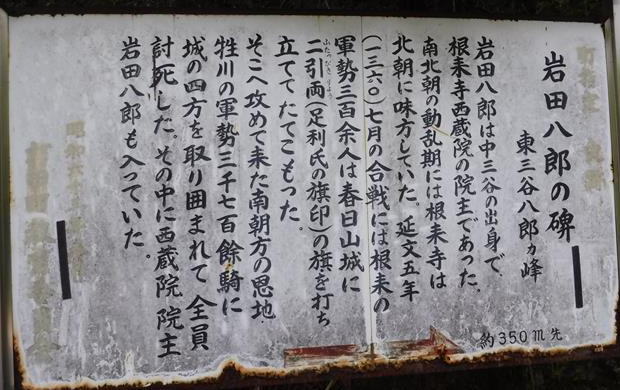 岩田八郎の碑
東三谷八郎ヵ峰
岩田八郎は中三谷の出身で、
根来寺西蔵院の院主であった。
南北朝の動乱期には根来寺は
北朝に味方していた。延文五年
(一三六〇)七月の合戦には根来の
軍勢三百余人は春日山城に
ふたつびきりょう
二引両(足利氏の旗印)の旗を打ち
立ててたてこもった。
そこへ攻めて来た南朝方の恩地・
牲川の軍勢三千七百餘騎に
城の四方を取り囲まれて全員
討死した。その中に西蔵院院主
岩田八郎も入っていた。
約350m先